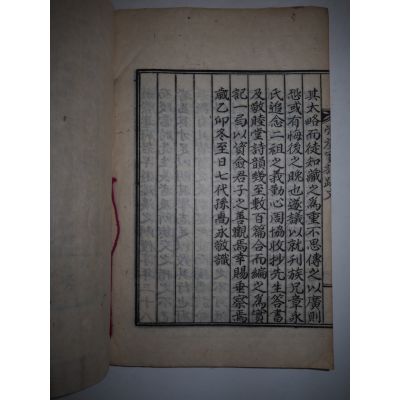 實記跋文
其太略而徒知藏之爲重不思傳之以廣則
或有悔後之晩也遂議以就刊族兄章永
氏追念二祖之義勤心周協收抄先生答書
及敬睦堂詩韻綫至數百篇合而編之爲實
記一局以資僉君子之善觀焉幸賜垂察焉
歲乙卯冬至日七代孫禹永敬識